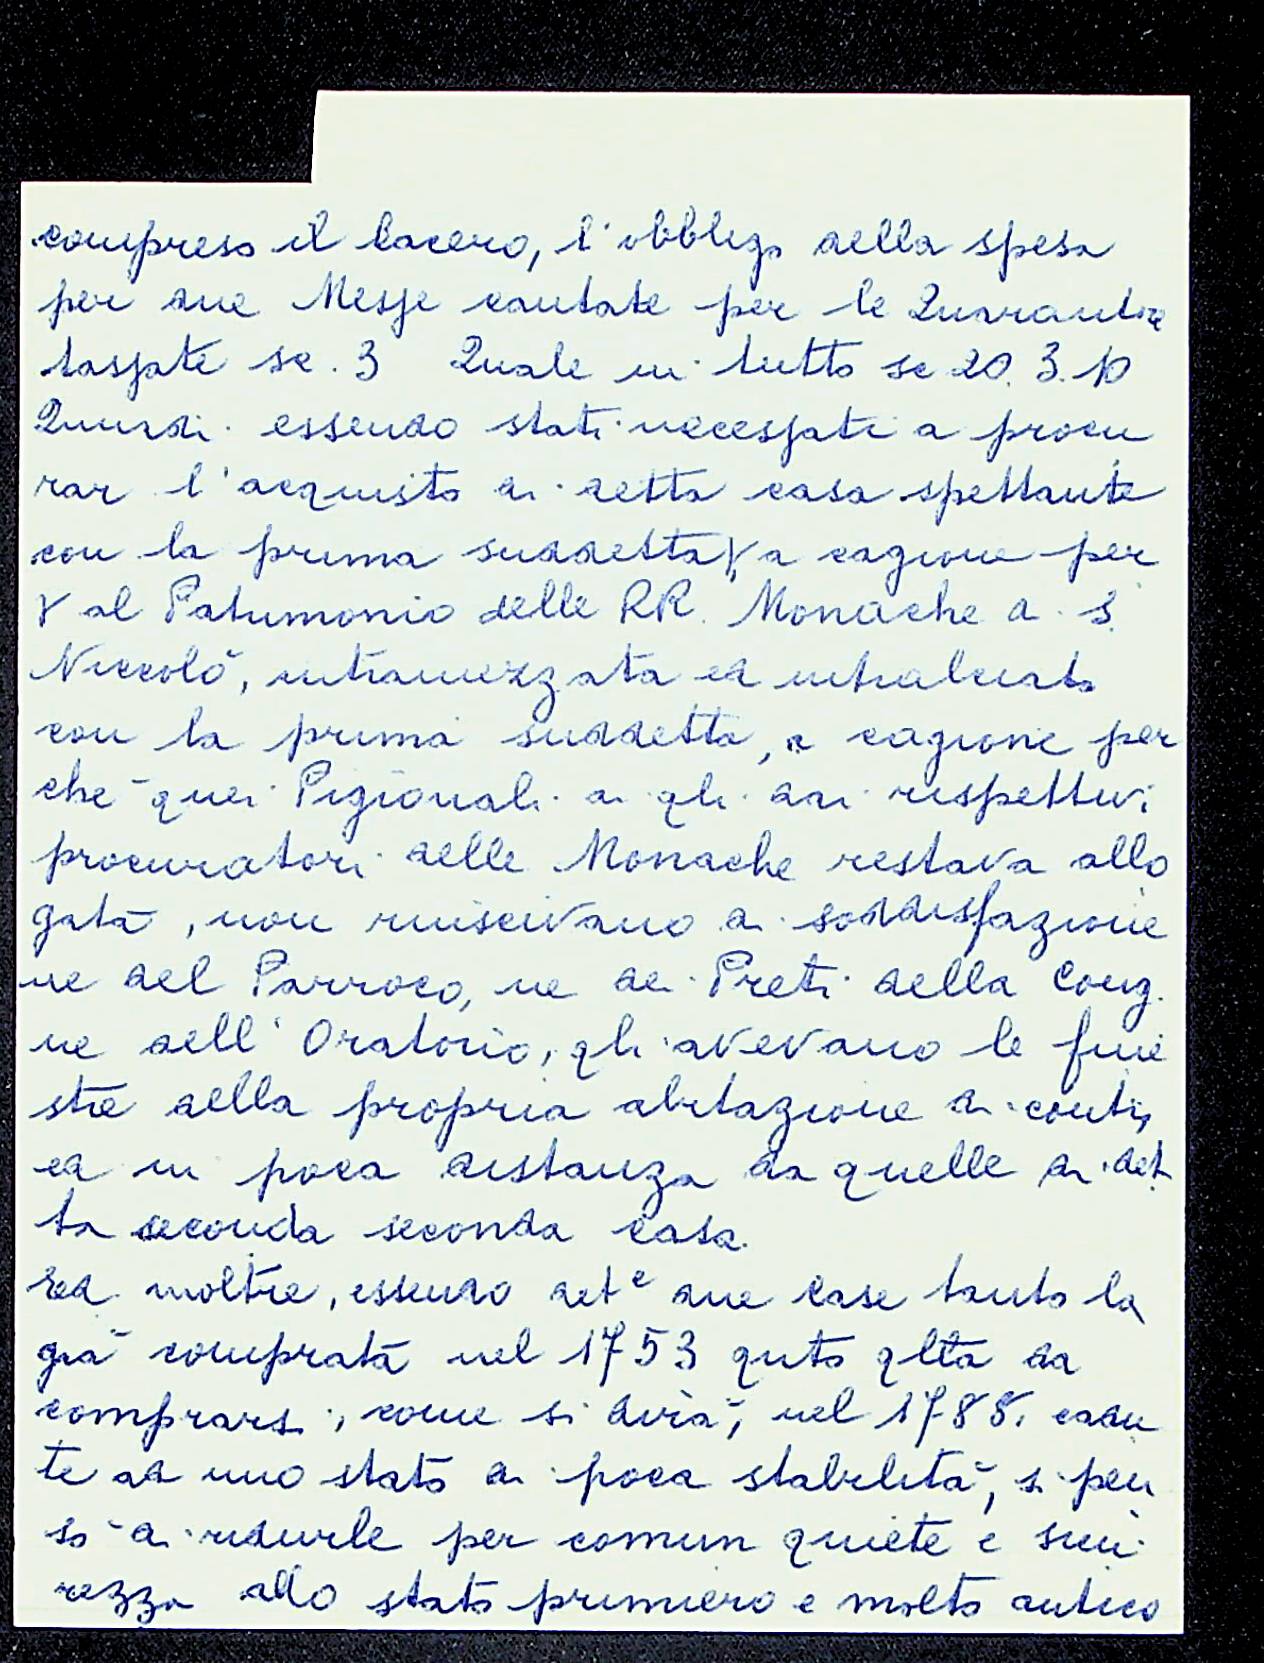 compreso il lacero, l'obbligo della spesa
per due Messe cantate per le Quarantre
tassate sc. 3 Quale in tutto sc 20. 3. 10
Quindi essendo stati necessitati a procu
rar l'acquisto di detta casa spettante
con la prima suddetta γ, a cagione per
γ al Patrimonio delle RR. Monache di S.
Niccolò, intramezzata ed intralciata
con la prima suddetta, a cagione per
che quei Pigionali a qli dai rispettivi
procuratori delle Monache restava allo
gata, non riuscivano di soddisfazione
ne del Parroco, ne dei Preti della Cong.
ne dell'Oratorio, qli avevano le fine
stre della propria abitazione di contro,
ed in poca distanza da quelle di det
ta seconda seconda casa.
Ed inoltre, essendo dete due Case tanto la
già comprata nel 1753 qnto qlla da
comprarsi, come si dirà, nel 1785. cadu
te ad uno stato di poca stabilità, si pen
sò di ridurle per comun quiete e sicu
rezza allo stato primiero e molto antico